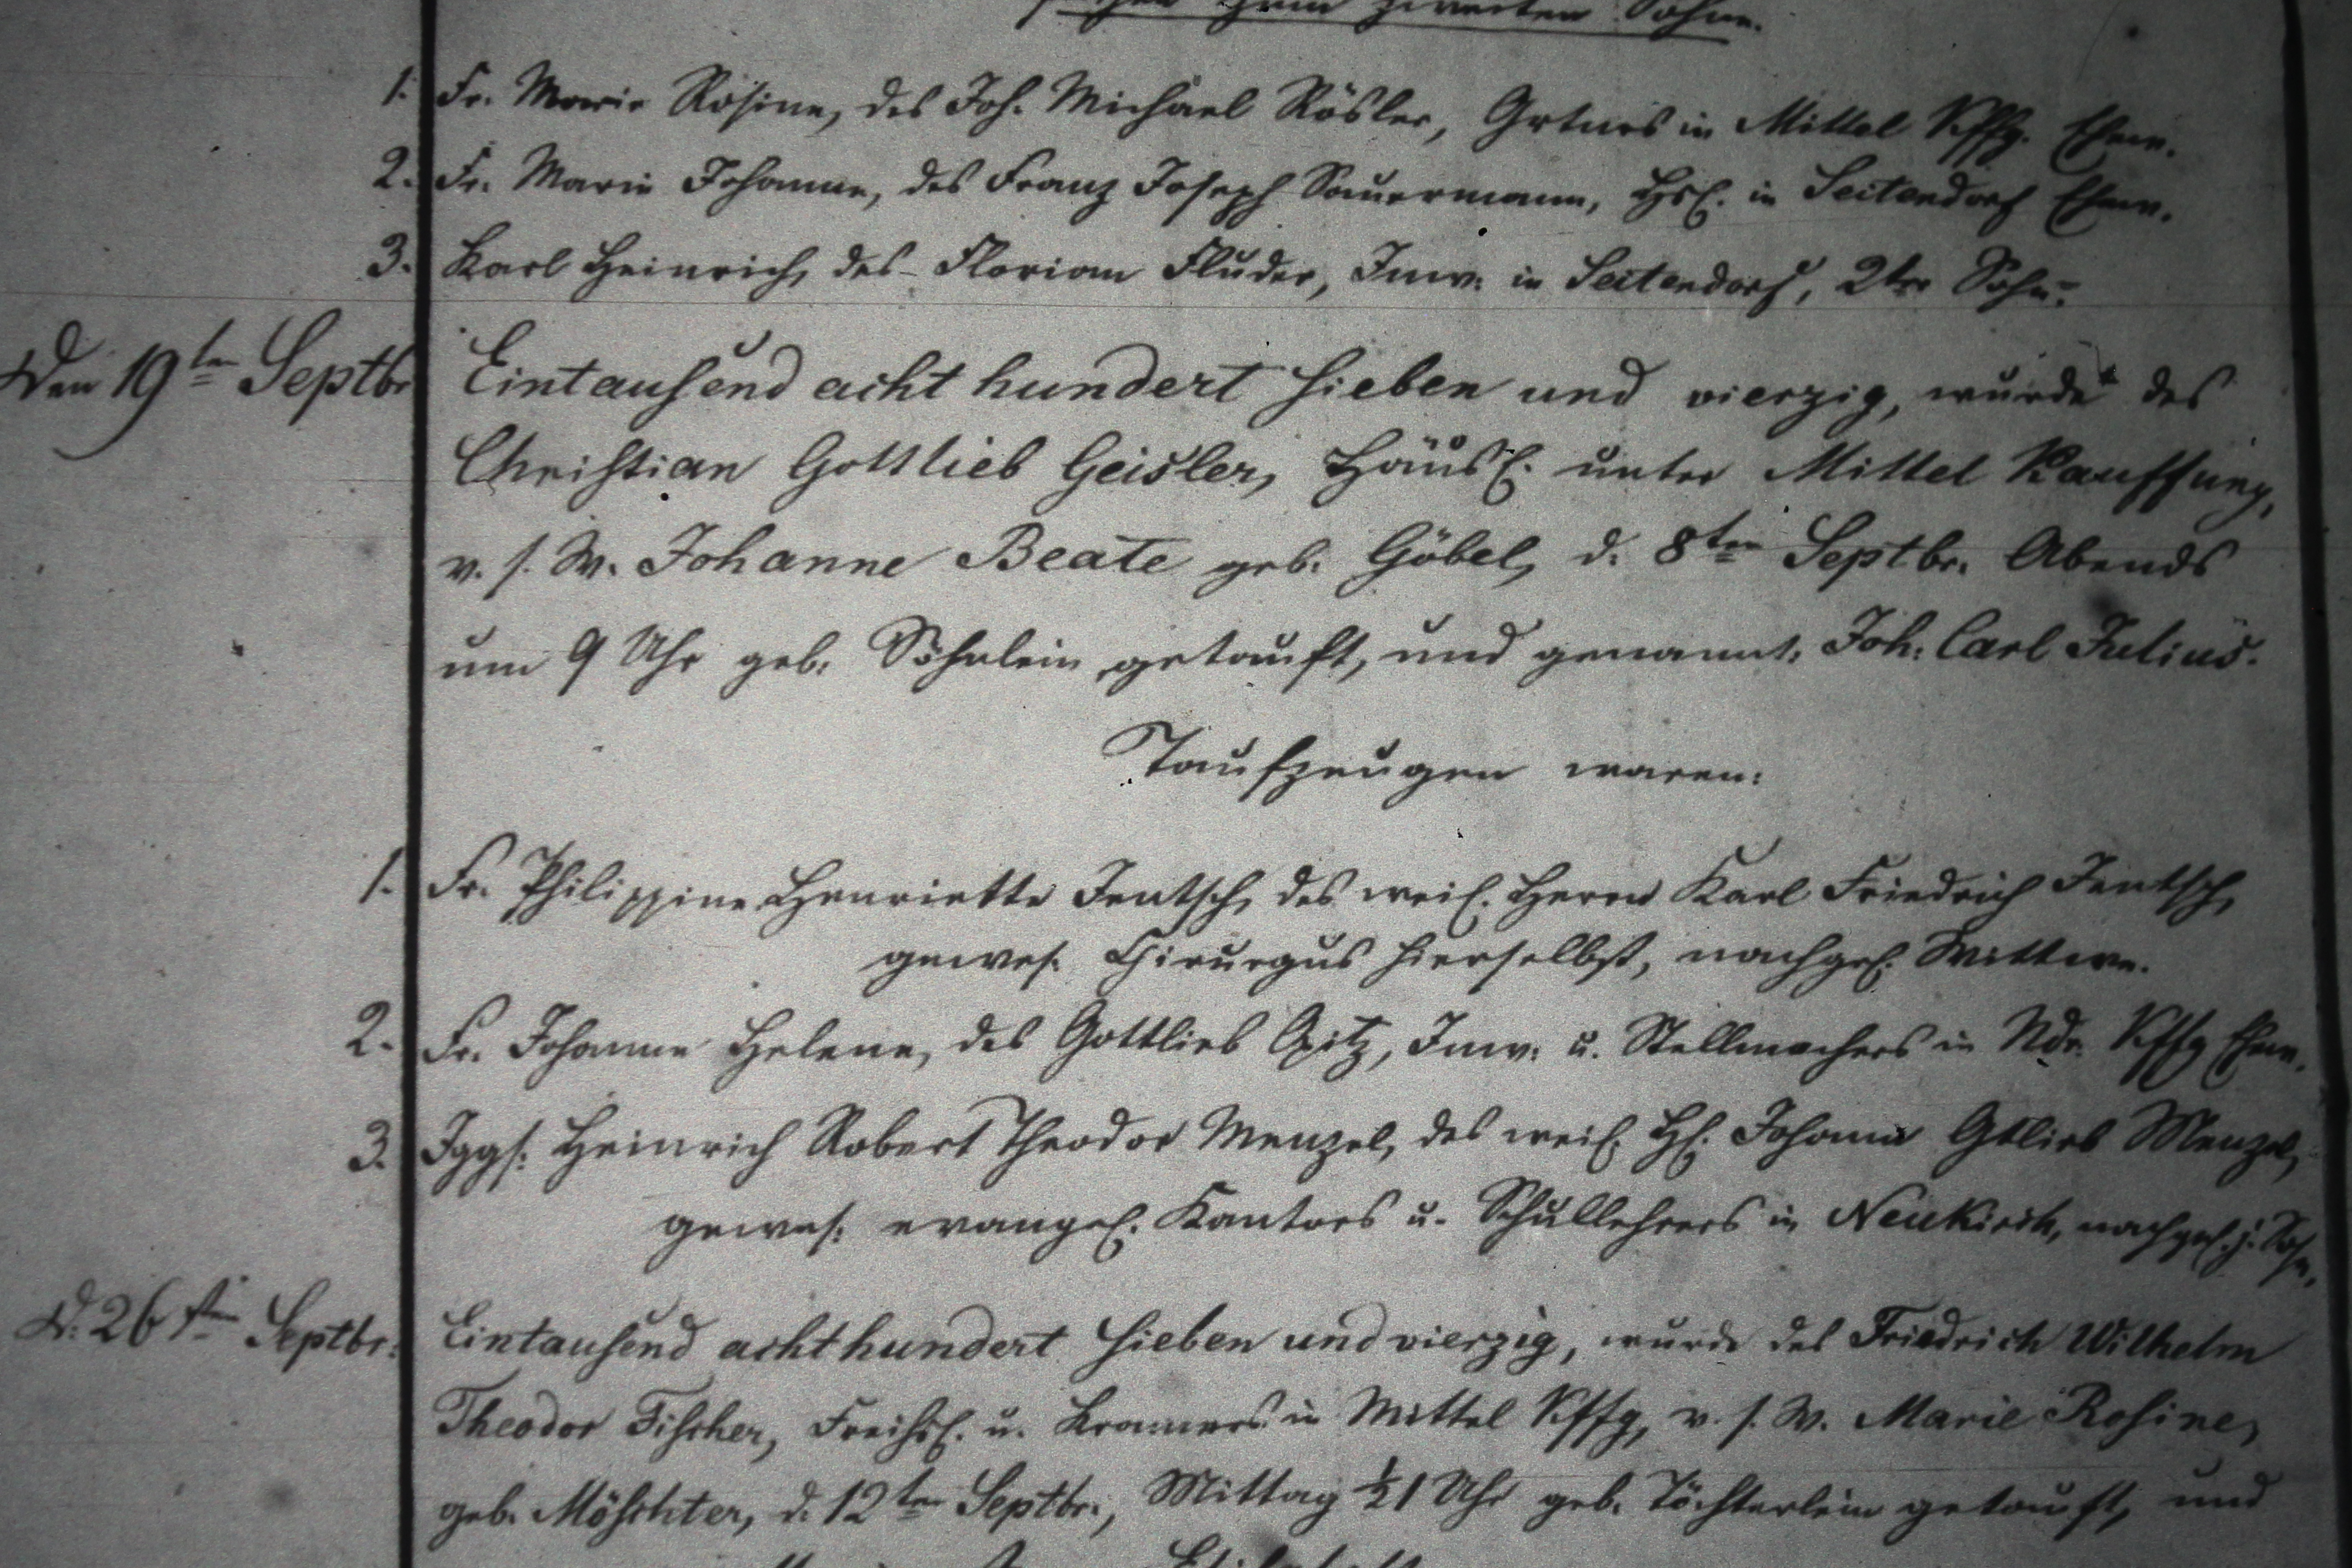 zweiten Sohne.
1. Fr. Marie Rosine, des Joh. Michael Rösler, Grtnrs in Mittel Kffg. Ehew.
2. Fr. Marie Johanne, des Franz Joseph Sauermann, Hsl. in Seitendorf Ehew.
3. Karl Heinrich, des Florian Fluder, Inw. in Seitendorf, 2ter Sohn.
Den 19ten Septbr Eintausend acht hundert sieben und vierzig, wurde des
Christian Gottlieb Geisler, Häusl. unter Mittel Kauffung,
v. s. W. Johanne Beate geb. Göbel, d. 8ten Septbr. Abends
um 9 Uhr geb. Söhnlein getauft, und genannt: Joh. Carl Julius.
Taufzeugen waren:
1. Fr. Philippine Henriette Jentsch, des weil. Herrn Karl Friedrich Jentsch,
gewes. Chirurgus hierselbst, nachgel. Wittwe.
2. Fr. Johanne Helene, des Gottlieb Opitz, Inw. u. Stellmachers in Ndr. Kffg Ehew.
3. Jggs. Heinrich Robert Theodor Menzel, des weil. H. Johann Gtlieb Menzel,
gewes. evangel. Kantors u. Schullehrers in Neukirch, nachgel. j. Sohn.
D. 26sten Septbr. Eintausend achthundert sieben und vierzig, wurde des Friedrich Wilhelm
Theodor Fischer, Freihsl. u. Kramers in Mittel Kffg, v. s. W. Marie Rosine,
geb. Möschter, d. 12ten Septbr., Mittag ½1 Uhr geb. Töchterlein getauft, und